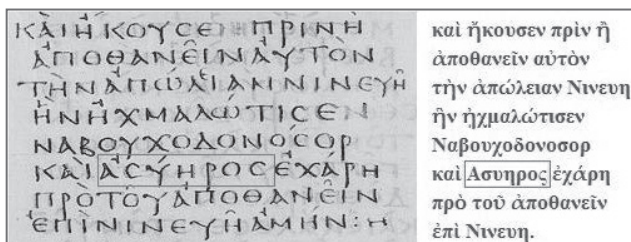 ΚΑΙΗΚΟΥCΕΠΡΙΝΗ
ΑΠΟΘΑΝΕΙΝΑΥΤΟΝ
ΤΗΝΑΠΩΛΙΑΝΝΙΝΕΥΗ
ΗΝΗΧΜΑΛΩΤΙCΕΝ
ΝΑΒΟΥΧΟΔΟΝΟCΟΡ
ΚΑΙΑCΥΗΡΟCΕΧΑΡΗ
ΠΡΟΤΟΥΑΠΟΘΑΝΕΙΝ
ΕΠΙΝΙΝΕΥΗΑΜΗΝ:
καὶ ἤκουσεν πρὶν ἢ
ἀποθανεῖν αὐτὸν
τὴν ἀπώλειαν Νινευη
ἣν ᾐχμαλώτισεν
Ναβουχοδονοσορ
καὶ Ασυηρος ἐχάρη
πρὸ τοῦ ἀποθανεῖν
ἐπὶ Νινευη.